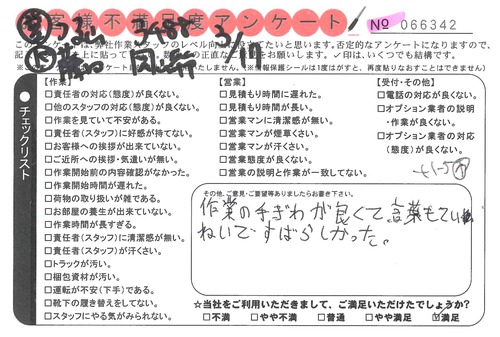 お客様不満足度アンケート
No 066342
このアンケートは、弊社作業スタッフのレベル向上に役立てたいと思います。否定的なアンケートになりますので、
【作業】
□責任者の対応(態度)が良くない。
□他のスタッフの対応(態度)が良くない。
□作業を見ていて不安がある。
□責任者(スタッフ)に好感が持てない。
□お客様への挨拶が出来ていない。
□ご近所への挨拶・気遣いが無い。
□作業開始前の内容確認がなかった。
□作業開始時間が遅れた。
□荷物の取り扱いが雑である。
□お部屋の養生が出来ていない。
□作業時間が長すぎる。
□責任者(スタッフ)に清潔感が無い。
□責任者(スタッフ)が汗くさい。
□トラックが汚い。
□梱包資材が汚い。
□運転が不安(下手)である。
□靴下の履き替えをしてない。
□スタッフにやる気がみられない。
【営業】
□見積もり時間に遅れた。
□見積もり時間が長い。
□営業マンに清潔感が無い。
□営業マンが煙草くさい。
□営業マンが汗くさい。
□営業態度が良くない。
□営業の説明と作業が一致してない。
【受付・その他】
□電話の対応が良くない。
□オプション業者の説明
・作業が良くない。
□オプション業者の対応
(態度)が良くない。
チェックリスト
その他、ご意見・ご要望等ありましたらお書き下さい。
作業の手ぎわが良くて、言葉もてい
ねいですばらしかった。
☆当社をご利用いただきまして、ご満足いただけたでしょうか?
□不満 □やや不満 □普通 □やや満足 ☑満足